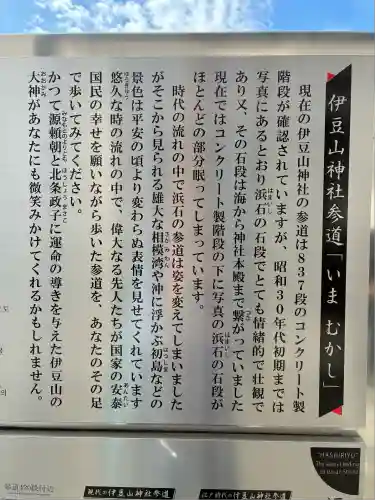 伊豆山神社参道「いま むかし」
現在の伊豆山神社の参道は837段のコンクリート製
階段が確認されていますが、昭和30年代初期までは
写真にあるとおり浜石の石段でとても情緒的で壮観で
あり又、その石段は海から神社本殿まで繋がっていました
現在ではコンクリート製階段の下に写真の浜石の石段が
ほとんどの部分眠ってしまっています。
時代の流れの中で浜石の参道は姿を変えてしまいました
がそこから見られる雄大な相模湾や沖に浮かぶ初島などの
景色は平安の頃より変わらぬ表情を見せてくれています
悠久な時の流れの中で、偉大なる先人たちが国家の安泰
国民の幸せを願いながら歩いた参道を、あなたのその足
で歩いてみてください。
かつて源頼朝と北条政子に運命の導きを与えた伊豆山の
大神があなたにも微笑みかけてくれるかもしれません。
"HASHIRIYU"
現代の伊豆山神社参道
江戸時代の伊豆山神社参道